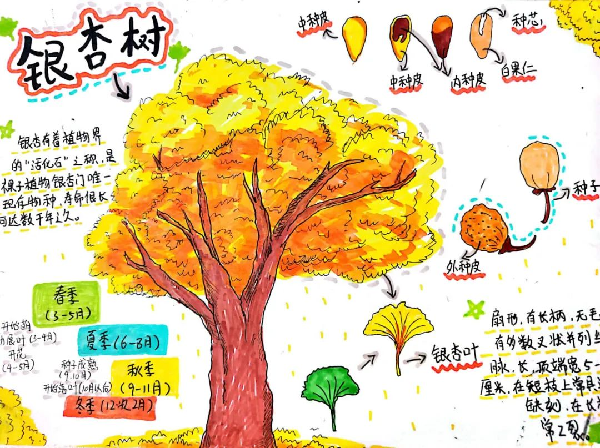 银杏树
中种皮
种芯
中种皮
内种皮
白果仁
银杏有着植物界
的“活化石”之称,是
裸子植物银杏门唯一
现存物种,寿命很长
可达数千年之久。
种子
外种皮
春季
(3-5月)
(3-4月)
开花
(4-5月)
夏季(6-8月)
种子成熟
(9.10月)
秋季
(9-11月)
冬季(12-2月)
银杏叶
扇形,有长柄,无毛
有分数叉状并列
脉,长,顶端宽5-
厘米,在短枝上常具
缺刻,在长